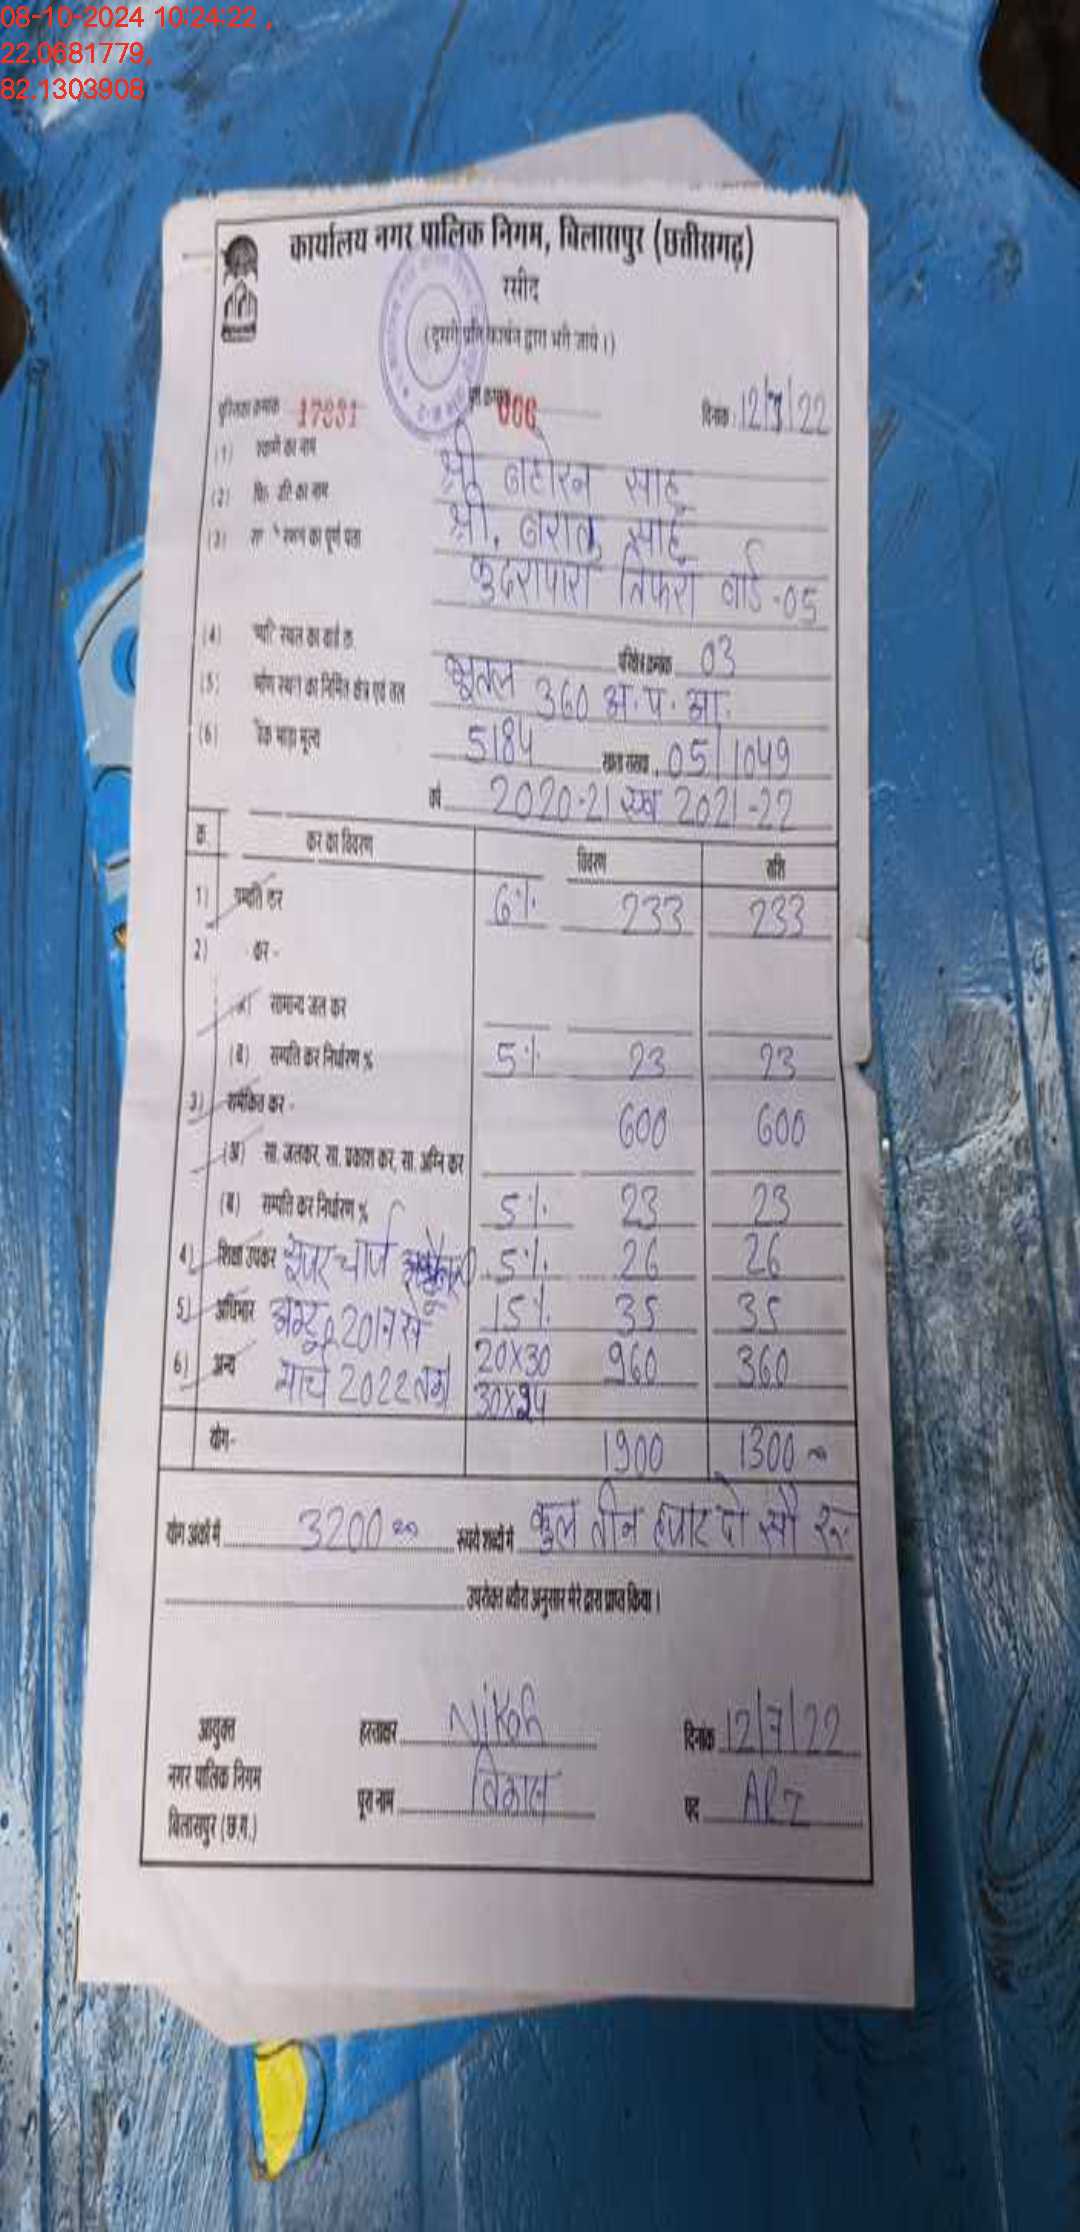 08-10-2024 10:24:22 ,
22.0681779,
82.1303908
कार्यालय नगर पालिक निगम, बिलासपुर (छत्तीसगढ़)
रसीद
(दूसरी प्रति कार्बन द्वारा भरी जाये।)
पुस्तिका क्रमांक 17831 006 दिनांक : 12/7/22
(1) का नाम श्री साहू
(2) का नाम श्री. साहू
(3) का पूर्ण पता कुदरापारा तिफरा वार्ड -05
(4) स्थल का वार्ड क्र. परिक्षेत्र क्रमांक 03
(5) का निर्मित क्षेत्र एवं तल भूतल 360 अ. प. आ.
(6) भाड़ा मूल्य 5184 खाता संख्या 05/1049
वर्ष 2020-21 एवं 2021-22
क्र. कर का विवरण विवरण राशि
1) सम्पत्ति कर 6% 233 233
2) कर -
सामान्य जल कर
(ब) सम्पत्ति कर निर्धारण % 5% 23 23
3) समेकित कर - 600 600
(अ) सा. जलकर, सा. प्रकाश कर, सा. अग्नि कर
(ब) सम्पत्ति कर निर्धारण % 5% 23 23
4) शिक्षा उपकर यूजर चार्ज 5% 26 26
5) अधिभार से 15% 35 35
6) अन्य मार्च 2022 तक 20x30 960 360
30x24
योग- 1900 1300
योग अंकों में 3200 रूपये शब्दों में कुल तीन हजार दो सौ रू
उपरोक्त ब्यौरा अनुसार मेरे द्वारा प्राप्त किया।
आयुक्त हस्ताक्षर दिनांक 12/7/22
नगर पालिक निगम पूरा नाम पद
बिलासपुर (छ.ग.)